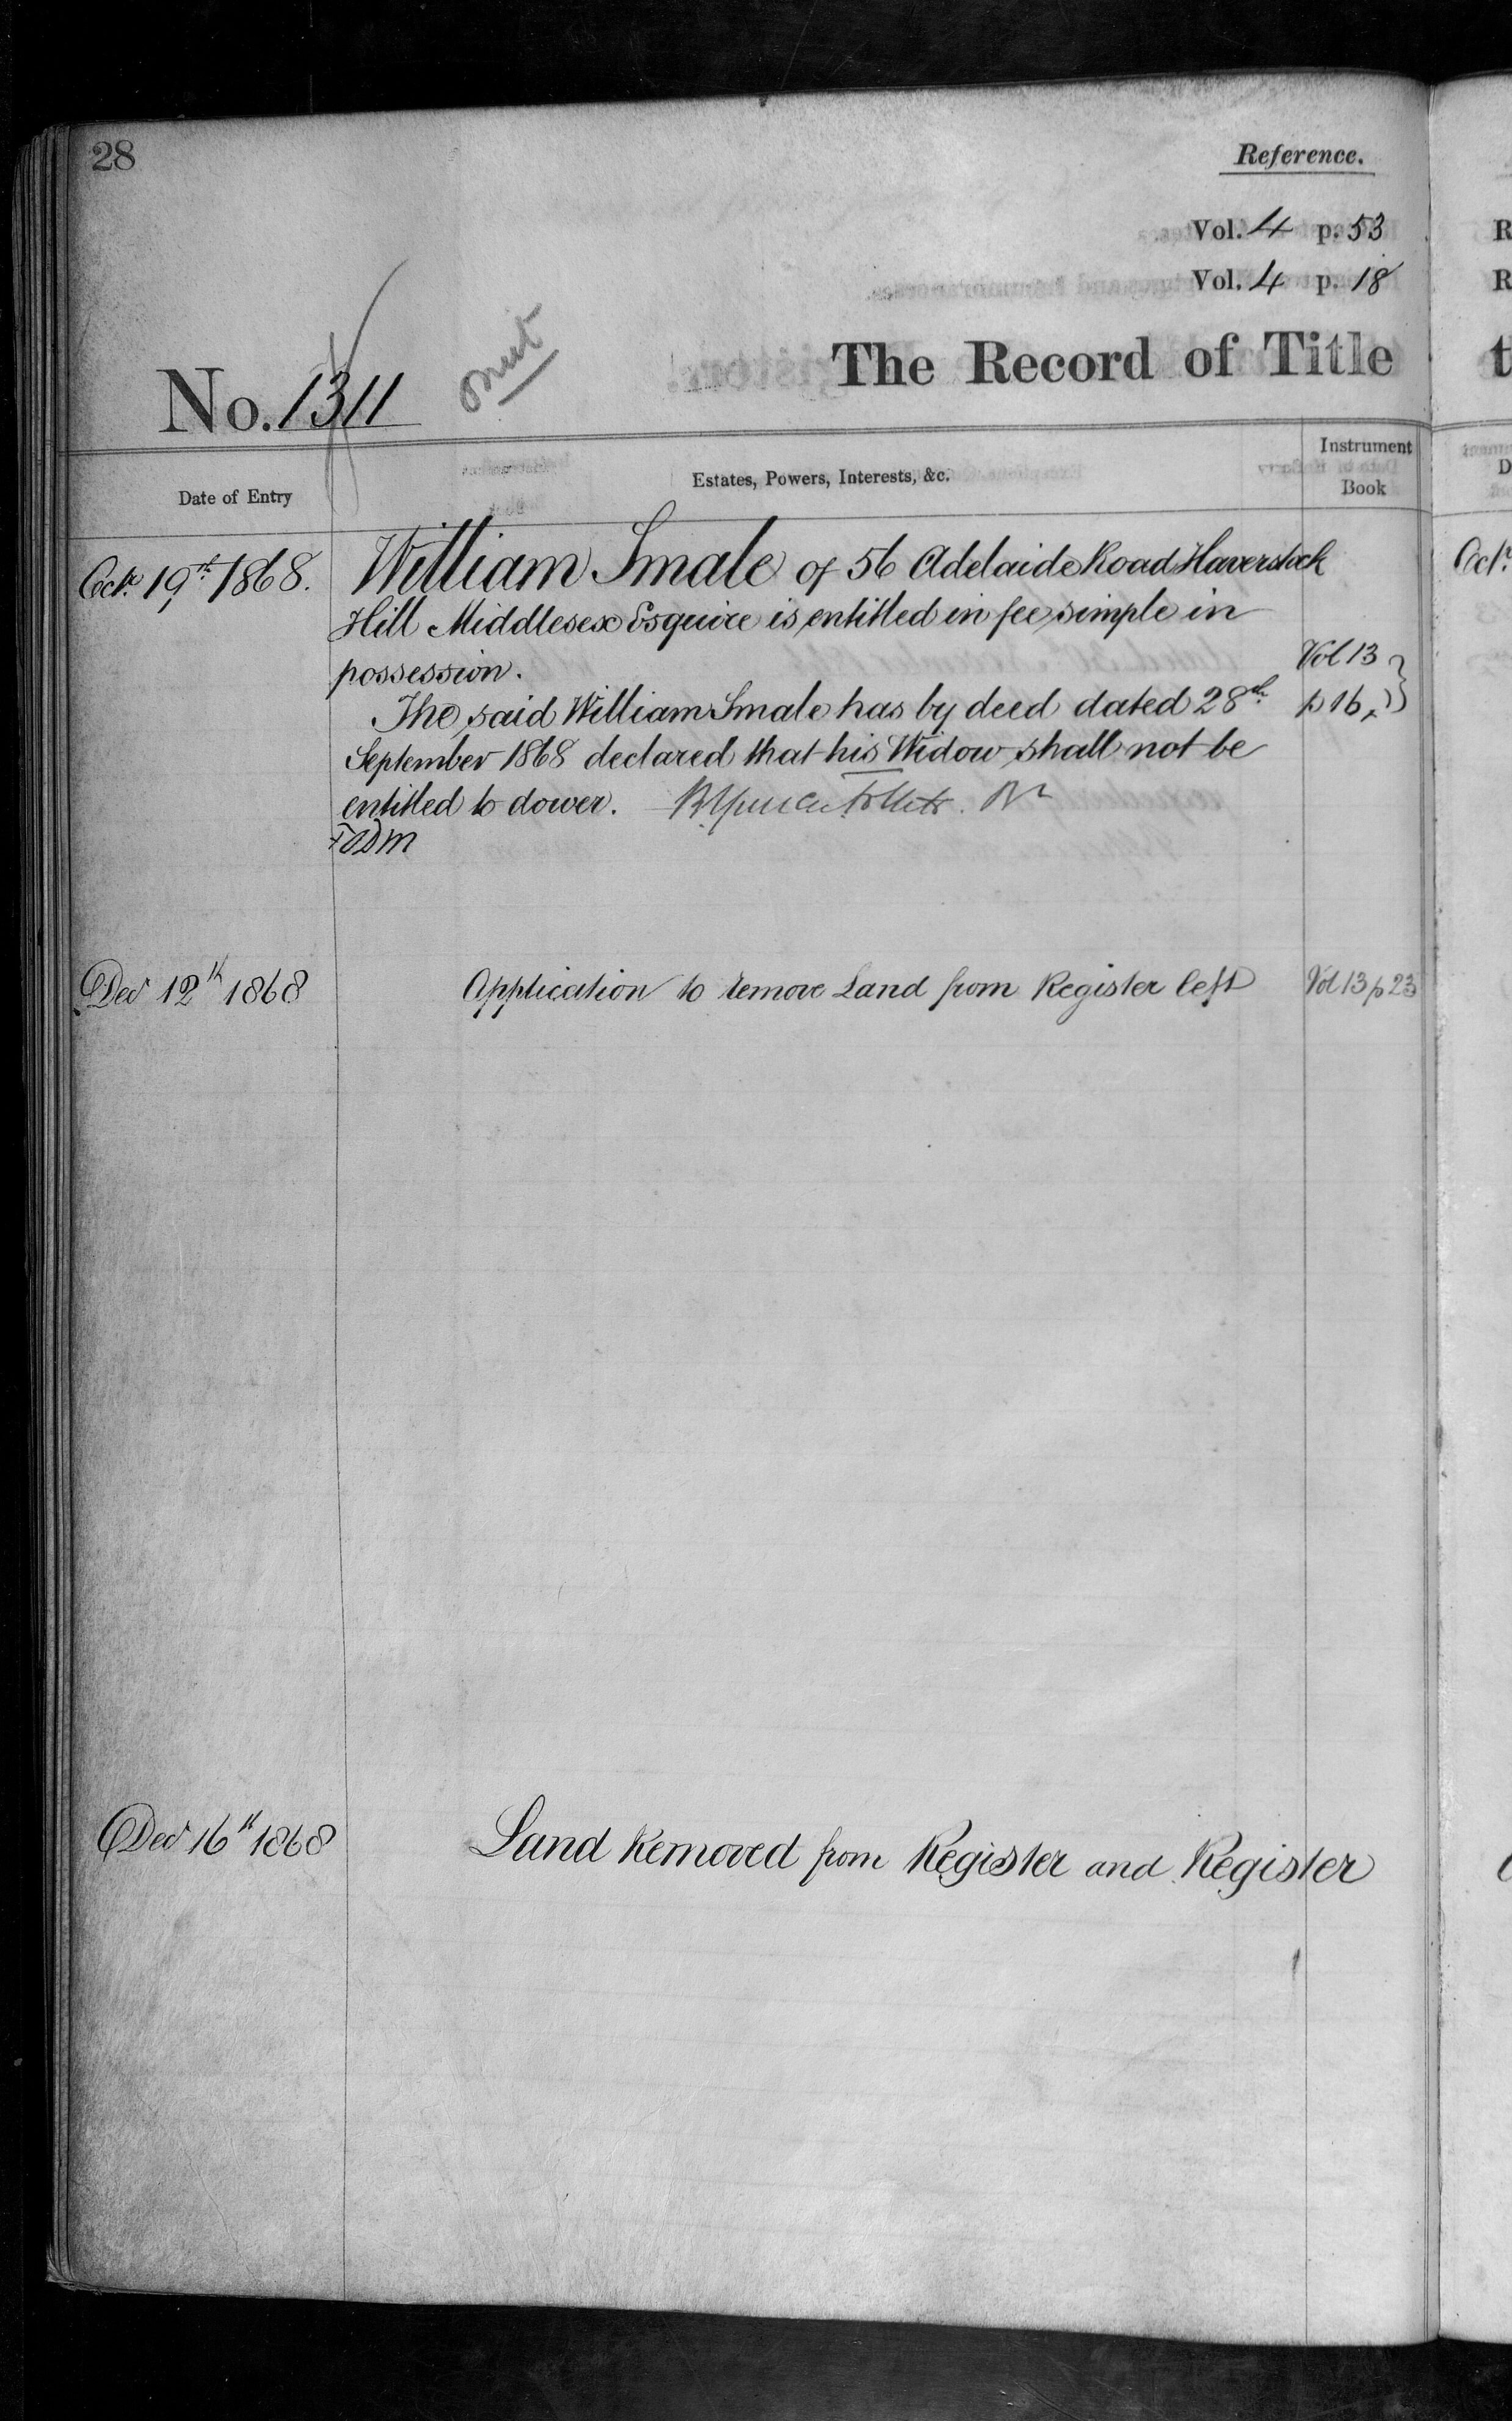 28
Reference.
Vol. 4 p. 53
Vol. 4 p. 18
No. 1311
omit
The Record of Title
Date of Entry
Estates, Powers, Interests, &c.
Instrument Book
Octr. 19th 1868.
William Smale of 56 Adelaide Road Haverstock
Hill Middlesex Esquire is entitled in fee simple in
possession.
Vol 13
The said William Smale has by deed dated 28th
p 16
September 1868 declared that his Widow shall not be
entitled to dower.
Dec 12th 1868
Application to remove Land from Register left
Vol 13 p 23
Dec 16th 1868
Land Removed from Register and Register